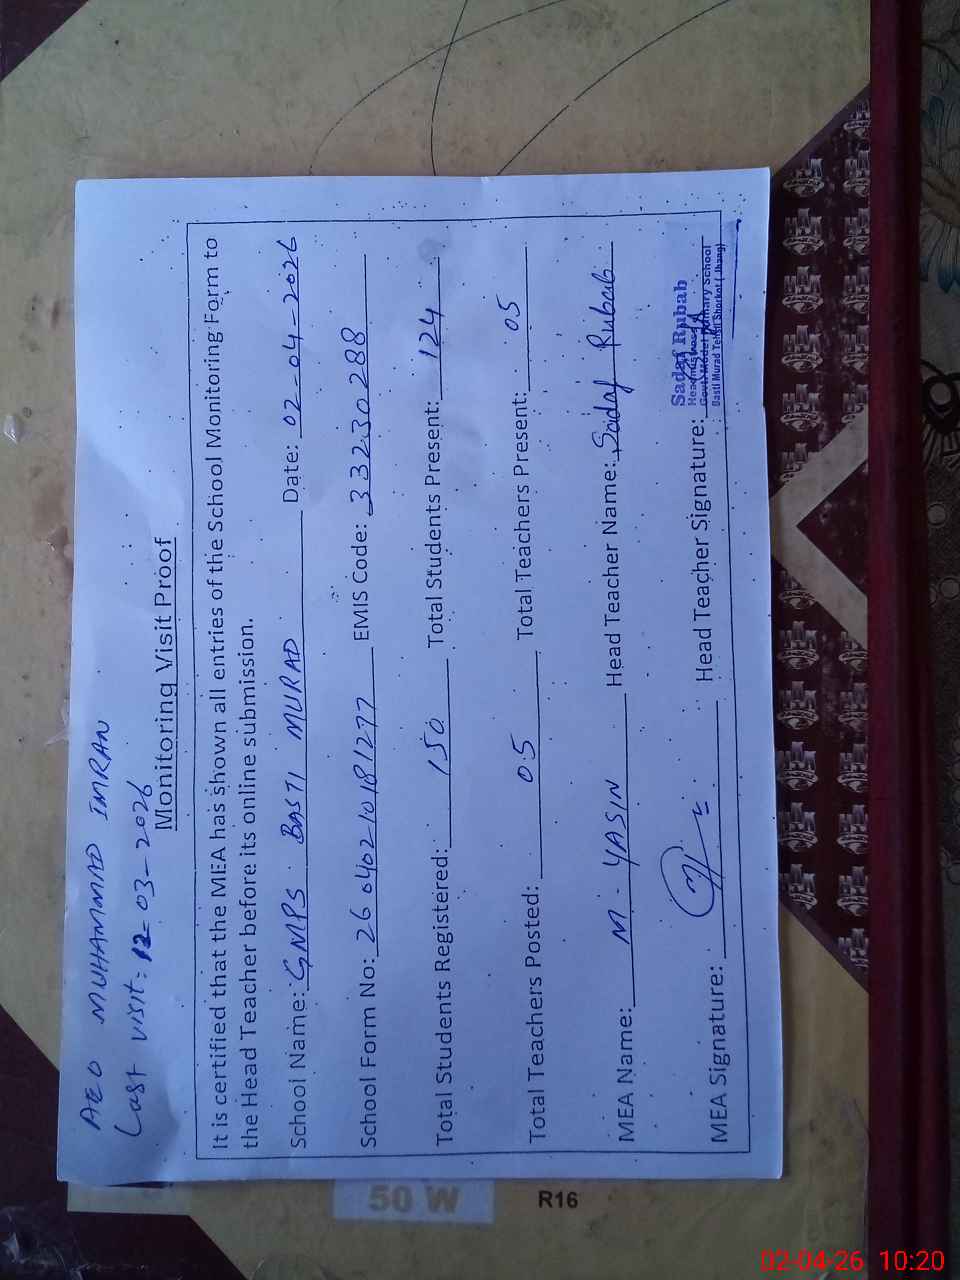 AEO MUHAMMAD IMRAN
Last visit: 12-03-2026
Monitoring Visit Proof
It is certified that the MEA has shown all entries of the School Monitoring Form to
the Head Teacher before its online submission.
School Name: GMPS BASTI MURAD Date: 02-04-2026
School Form No: 26040210181277 EMIS Code: 33230288
Total Students Registered: 150 Total Students Present: 124
Total Teachers Posted: 05 Total Teachers Present: 05
MEA Name: M. YASIN Head Teacher Name: Sadaf Rubab
MEA Signature: Head Teacher Signature:
Sadaf Rubab
Headmistress
Govt. Model Primary School
Basti Murad Tehsil Shorkot (Jhang)
50 W R16
02-04-26 10:20